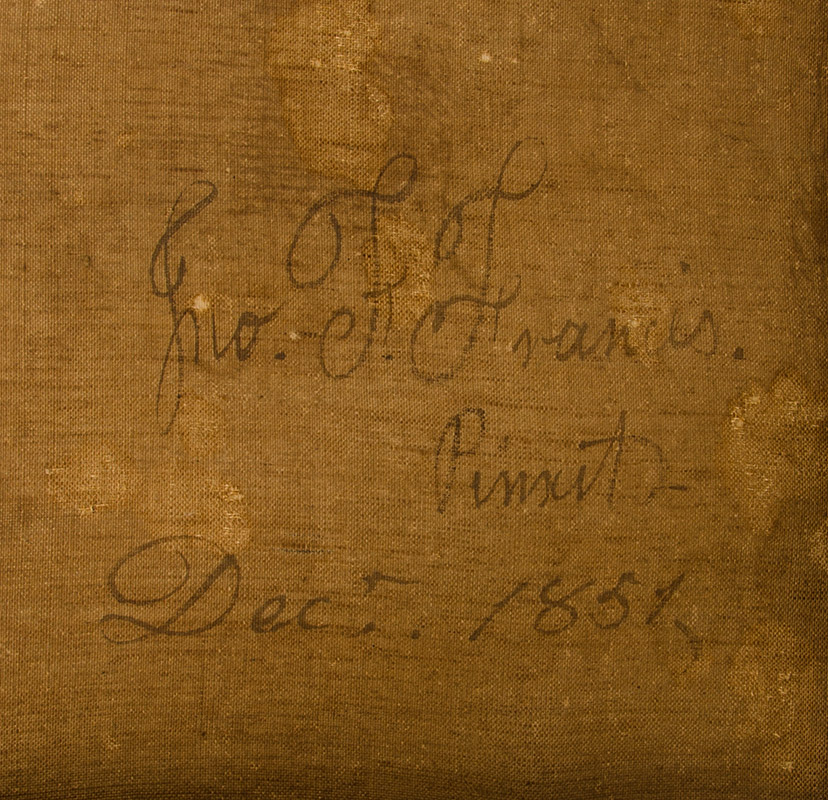 Jno. F. Francis.
Pinxit
Decr. 1851